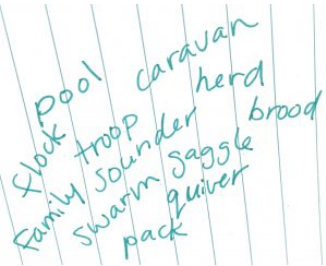 pool caravan
flock troop herd
family sounder brood
swarm gaggle
pack quiver